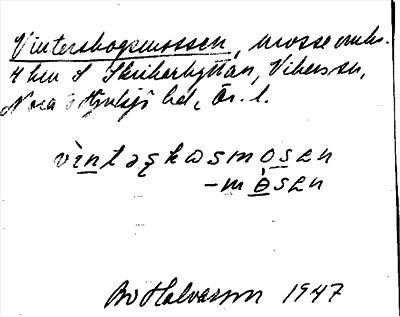 Vinterskogsmossen, mosse omkr.
4 km S Skrikarhyttan, Vikers sn,
Nora o Hjulsjö bd, Ör. l.
vìntəskωsmosɛn
-mòsɛn
Bo Halvarson 1947